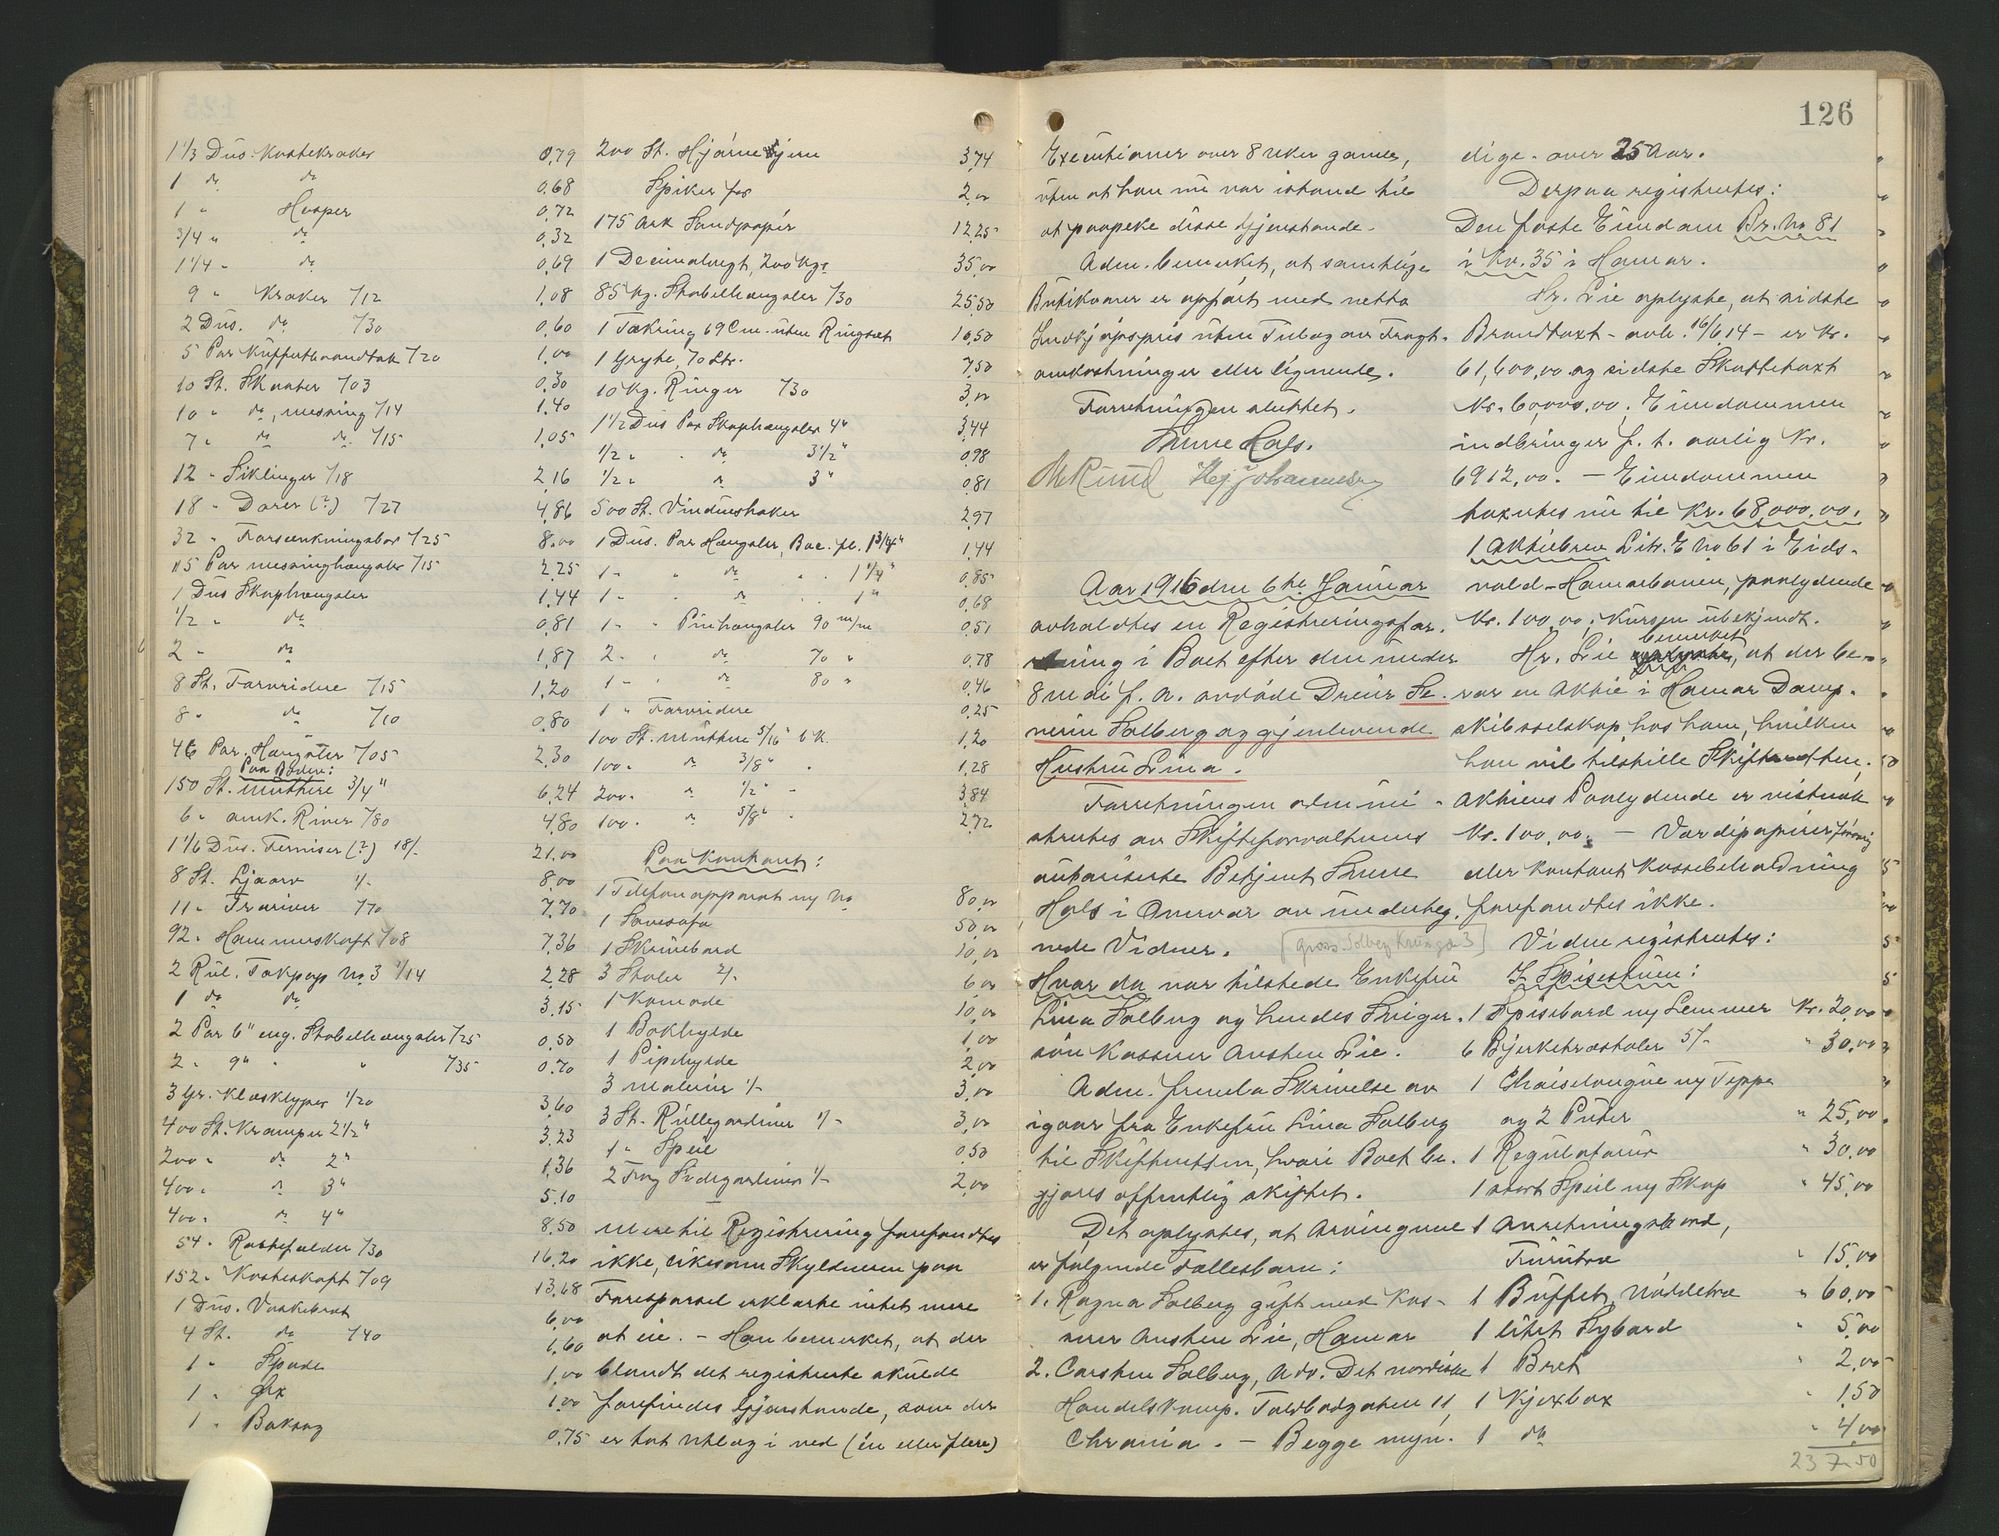 126
1 1/3 Dus. Kostekroker 0,79
1 do do 0,68
1 " Hasper 0,72
3/4 " do 0,32
1 1/4 " do 0,69
9 " Kroker /12 1,08
2 Dus. do /30 0,60
5 Par Kufferthaandtak /20 1,00
10 St. Skaater /03 0,30
10 " do, messing /14 1,40
7 " do do /15 1,05
12 " Siklinger /18 2,16
18 " Dorer (?) /27 4,86
32 " Forsenkningsbor /25 8,00
15 Par messinghængsler /15 2,25
1 Dus Skaphængsler 1,44
1/2 " do 0,81
2 " do 1,87
8 St. Farvridere /15 1,20
8 " do /10 0,80
46 Par. Hængsler /05 2,30
Paa Boden:
150 St. Muttere 3/4" 6,24
6 " amk. River /80 4,80
1 1/6 Dus. Ferniser (?) 18/- 21,00
8 St. Ljaarv 1/- 8,00
11 " Træriver /70 7,70
92 " Hammerskaft /08 7,36
2 Rul. Takpap No 3 1/14 2,28
1 do do 3,15
2 Par 6" eng. Stabelhængsler /25 0,50
2 " 9" " " /35 0,70
3 Gr. Klæsklyper 1/20 3,60
400 St. Kramper 2 1/2" 3,23
200 " do 2" 1,36
400 " do 3" 5,10
400 " do 4" 8,50
54 " Kostefælder /30 16,20
152 " Kosteskaft /09 13,68
1 Dus. Vaskebræt 6,00
4 St. do /40 1,60
1 " Spade 1,00
1 " Øx 1,00
1 " Baksag 0,75
200 St. Hjørnejern 3,74
Spiker for 2,00
175 Ark Sandpapir 12,25
1 Decimalvegt, 200 kgs 35,00
85 kg. Stabelhængsler /30 25,50
1 Takring 69 Cm. uten Ringsæt 10,50
1 Gryte, 70 Ltr. 7,50
10 kg. Ringer /30 3,00
1 1/2 Dus Par Skaphængsler 4" 3,44
1/2 " " do 3 1/2" 0,98
1/2 " do 3" 0,81
500 St. Vindushaker 2,97
1 Dus. Par Hængsler, Bac. pl. 1 3/4" 1,44
1 " " do " " 1 1/4" 0,85
1 " " do " " 1" 0,68
1 " " Pinhængsler 90 m/m 0,51
2 " " do 70 " 0,78
1 " " do 80 " 0,46
1 " Farvridere 0,25
100 St. Muttere 5/16" 1,20
100 " do 3/8" " 1,28
200 " do 1/2" " 3,84
100 " do 5/8" " 2,72
Paa Kontoret:
1 Telefonapparat ny No 80,00
1 Sovesofa 50,00
1 Skrivebord 10,00
3 Stoler 2/- 6,00
1 Komode 10,00
1 Bokhylde 1,00
1 Pipehylde 2,00
3 Malerier 1/- 3,00
3 St. Rullegardiner 1/- 3,00
1 " Speil 0,50
2 Fag Sidegardiner 1/- 2,00
Mere til Registrering forefandtes
ikke, likesom Skyldneren paa
Forespørsel erklærte intet mere
at eie. - Han bemerket, at der
blandt det registrerte skulde
forefindes Gjenstande, som der
er tat Utlæg i ved (én eller flere)
Executioner over 8 uker gamle,
uten at han nu var istand til
at paapeke disse Gjenstande.
Adm. bemerket, at samtlige
Butikvarer er opført med netto
Indkjøpspris uten Tillæg av Fragt-
omkostninger eller lignende.
Forretningen sluttet.
Thune Hals.
M. Ruud Hegg Johannesen
Aar 1916 den 6te Januar
avholdtes en Registreringsfor-
retning i Boet efter den under
8 mai f. a. avdøde Dreier Se-
verin Solberg og gjenlevende
Hustru Lina.
Forretningen admini-
streertes av Skifteforvalterens
autoriserte Betjent Thune
Hals i Overvær av undertegn-
nede Vidner. [Gross. Solberg Krüsegt 3]
Hvor da var tilstede Enkefru
Lina Solberg og hendes Sviger-
søn Kasserer Austen Lie.
Adm. fremla Skrivelse av
igaar fra Enkefru Lina Solberg
til Skifteretten, hvori Boet be-
gjæres offentlig skiftet.
Det oplystes, at Arvingerne
er følgende Fællesbarn:
1. Ragna Solberg gift med Kas-
serer Austen Lie, Hamar
2. Carsten Solberg, Adr. Det nordiske
Handelskomp. Toldbodgaten 11,
Chrania. - Begge myn-
dige - over 25 Aar.
Derpaa registrertes:
Den faste Eiendom Br. No 81
i Kv. 35 i Hamar.
Hr. Lie oplyste, at sidste
Brandtakst - avh. 16/6 14 - er Kr.
61,600,00 og sidste Skattetaxt
Kr. 60,000,00. Eiendommen
indbringer f. t. aarlig Kr.
6912,00. - Eiendommen
taxertes nu til Kr. 68,000,00.
1 Aktiebrev Litr. E No 61 i Eids-
vold-Hamarbanen, paalydende
Kr. 100,00; Kursen ubekjendt.
bemerket
Hr. Lie oplyste, at der be-
ror en Aktie i Hamar Damp-
skibsselskap hos ham, hvilken
han vil tilstille Skifteretten.
Aktiens Paalydende er vistnok
Kr. 100,00. - Værdipapirer forøvrig
eller kontant Kassebeholdning
forefandtes ikke.
Videre registrertes:
I Spisestuen:
1 Spisebord ny Lemmer Kr. 20,00
6 Bjerketræstoler 5/- " 30,00
1 Chaiselongue ny Teppe
og 2 Puter " 25,00
1 Regulatorur " 30,00
1 stort Speil ny Skap " 45,00
1 Anretningsbord,
Furutræ " 15,00
1 Buffet, Nøddetræ " 60,00
1 litet Sybord " 5,00
1 Bret " 2,00
1 Kjoxbox " 1,50
1 do " 4,00
237.50